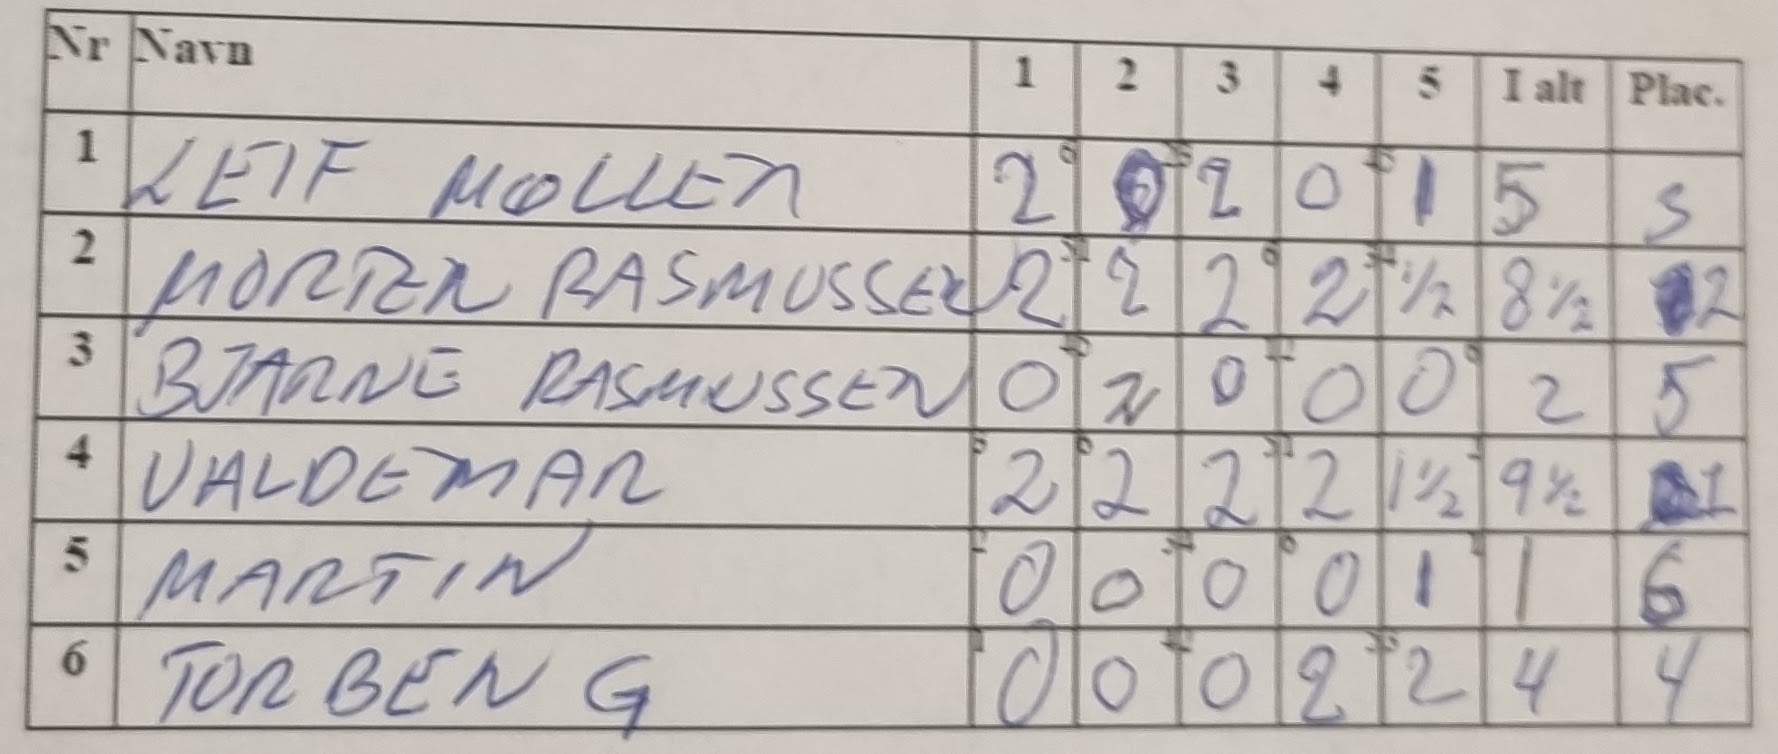 Nr Navn 1 2 3 4 5 I alt Plac.
1 LEIF MØLLER 2 0 2 0 1 5 3
2 MORTEN RASMUSSEN 2 2 2 2 1/2 8 1/2 2
3 BJARNE RASMUSSEN 0 2 0 0 0 2 5
4 VALDEMAR 2 2 2 2 1 1/2 9 1/2 1
5 MARTIN 0 0 0 0 1 1 6
6 TORBEN G 0 0 0 2 2 4 4